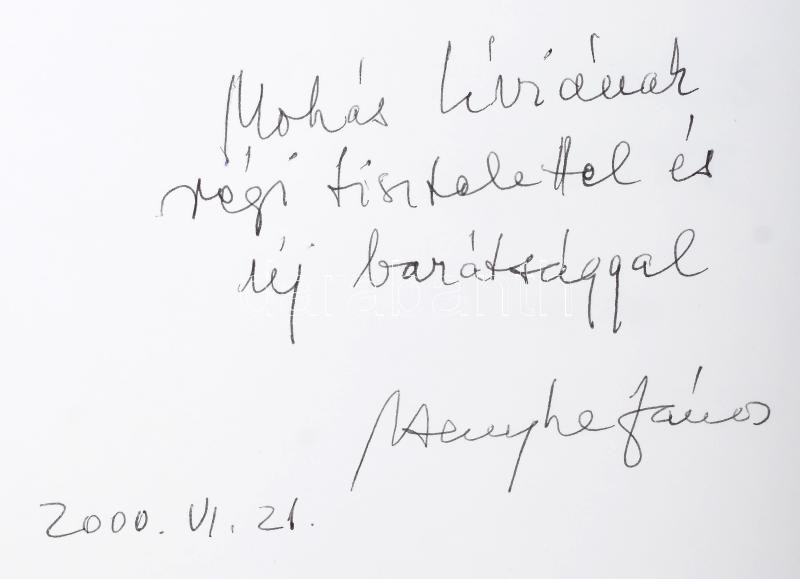 Mohás Líviának
régi tisztelettel és
új barátsággal
darabanth
Menyhe János
2000. VI. 21.